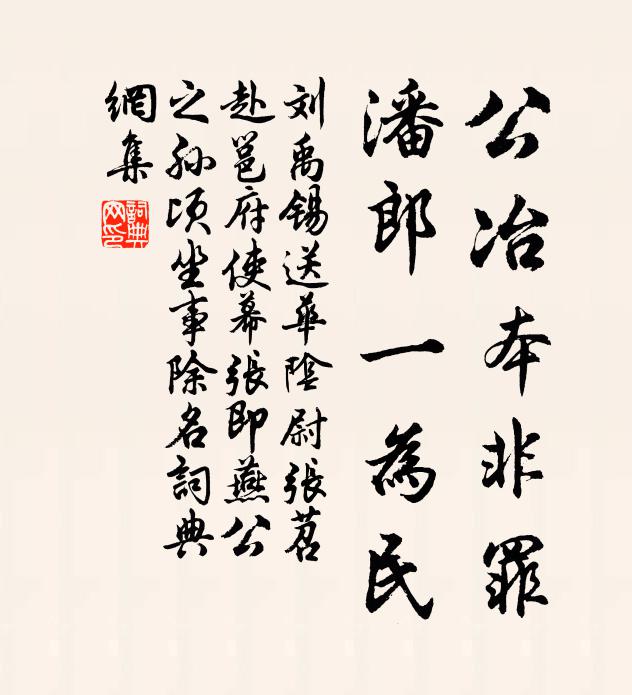 公冶本非罪
潘郎一為民
刘禹锡送華陰尉張苕
赴邕府使幕張即燕公
之孙顷坐事除名詞典
網集
詞典網印